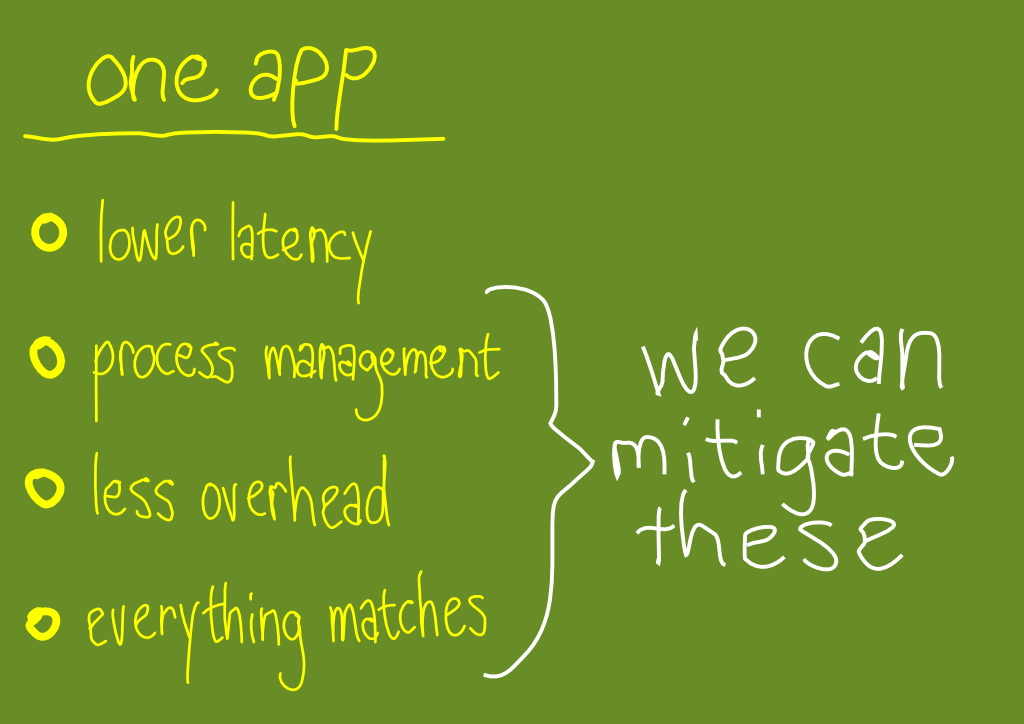 one app
lower latency
process management
less overhead
everything matches
we can
mitigate
these